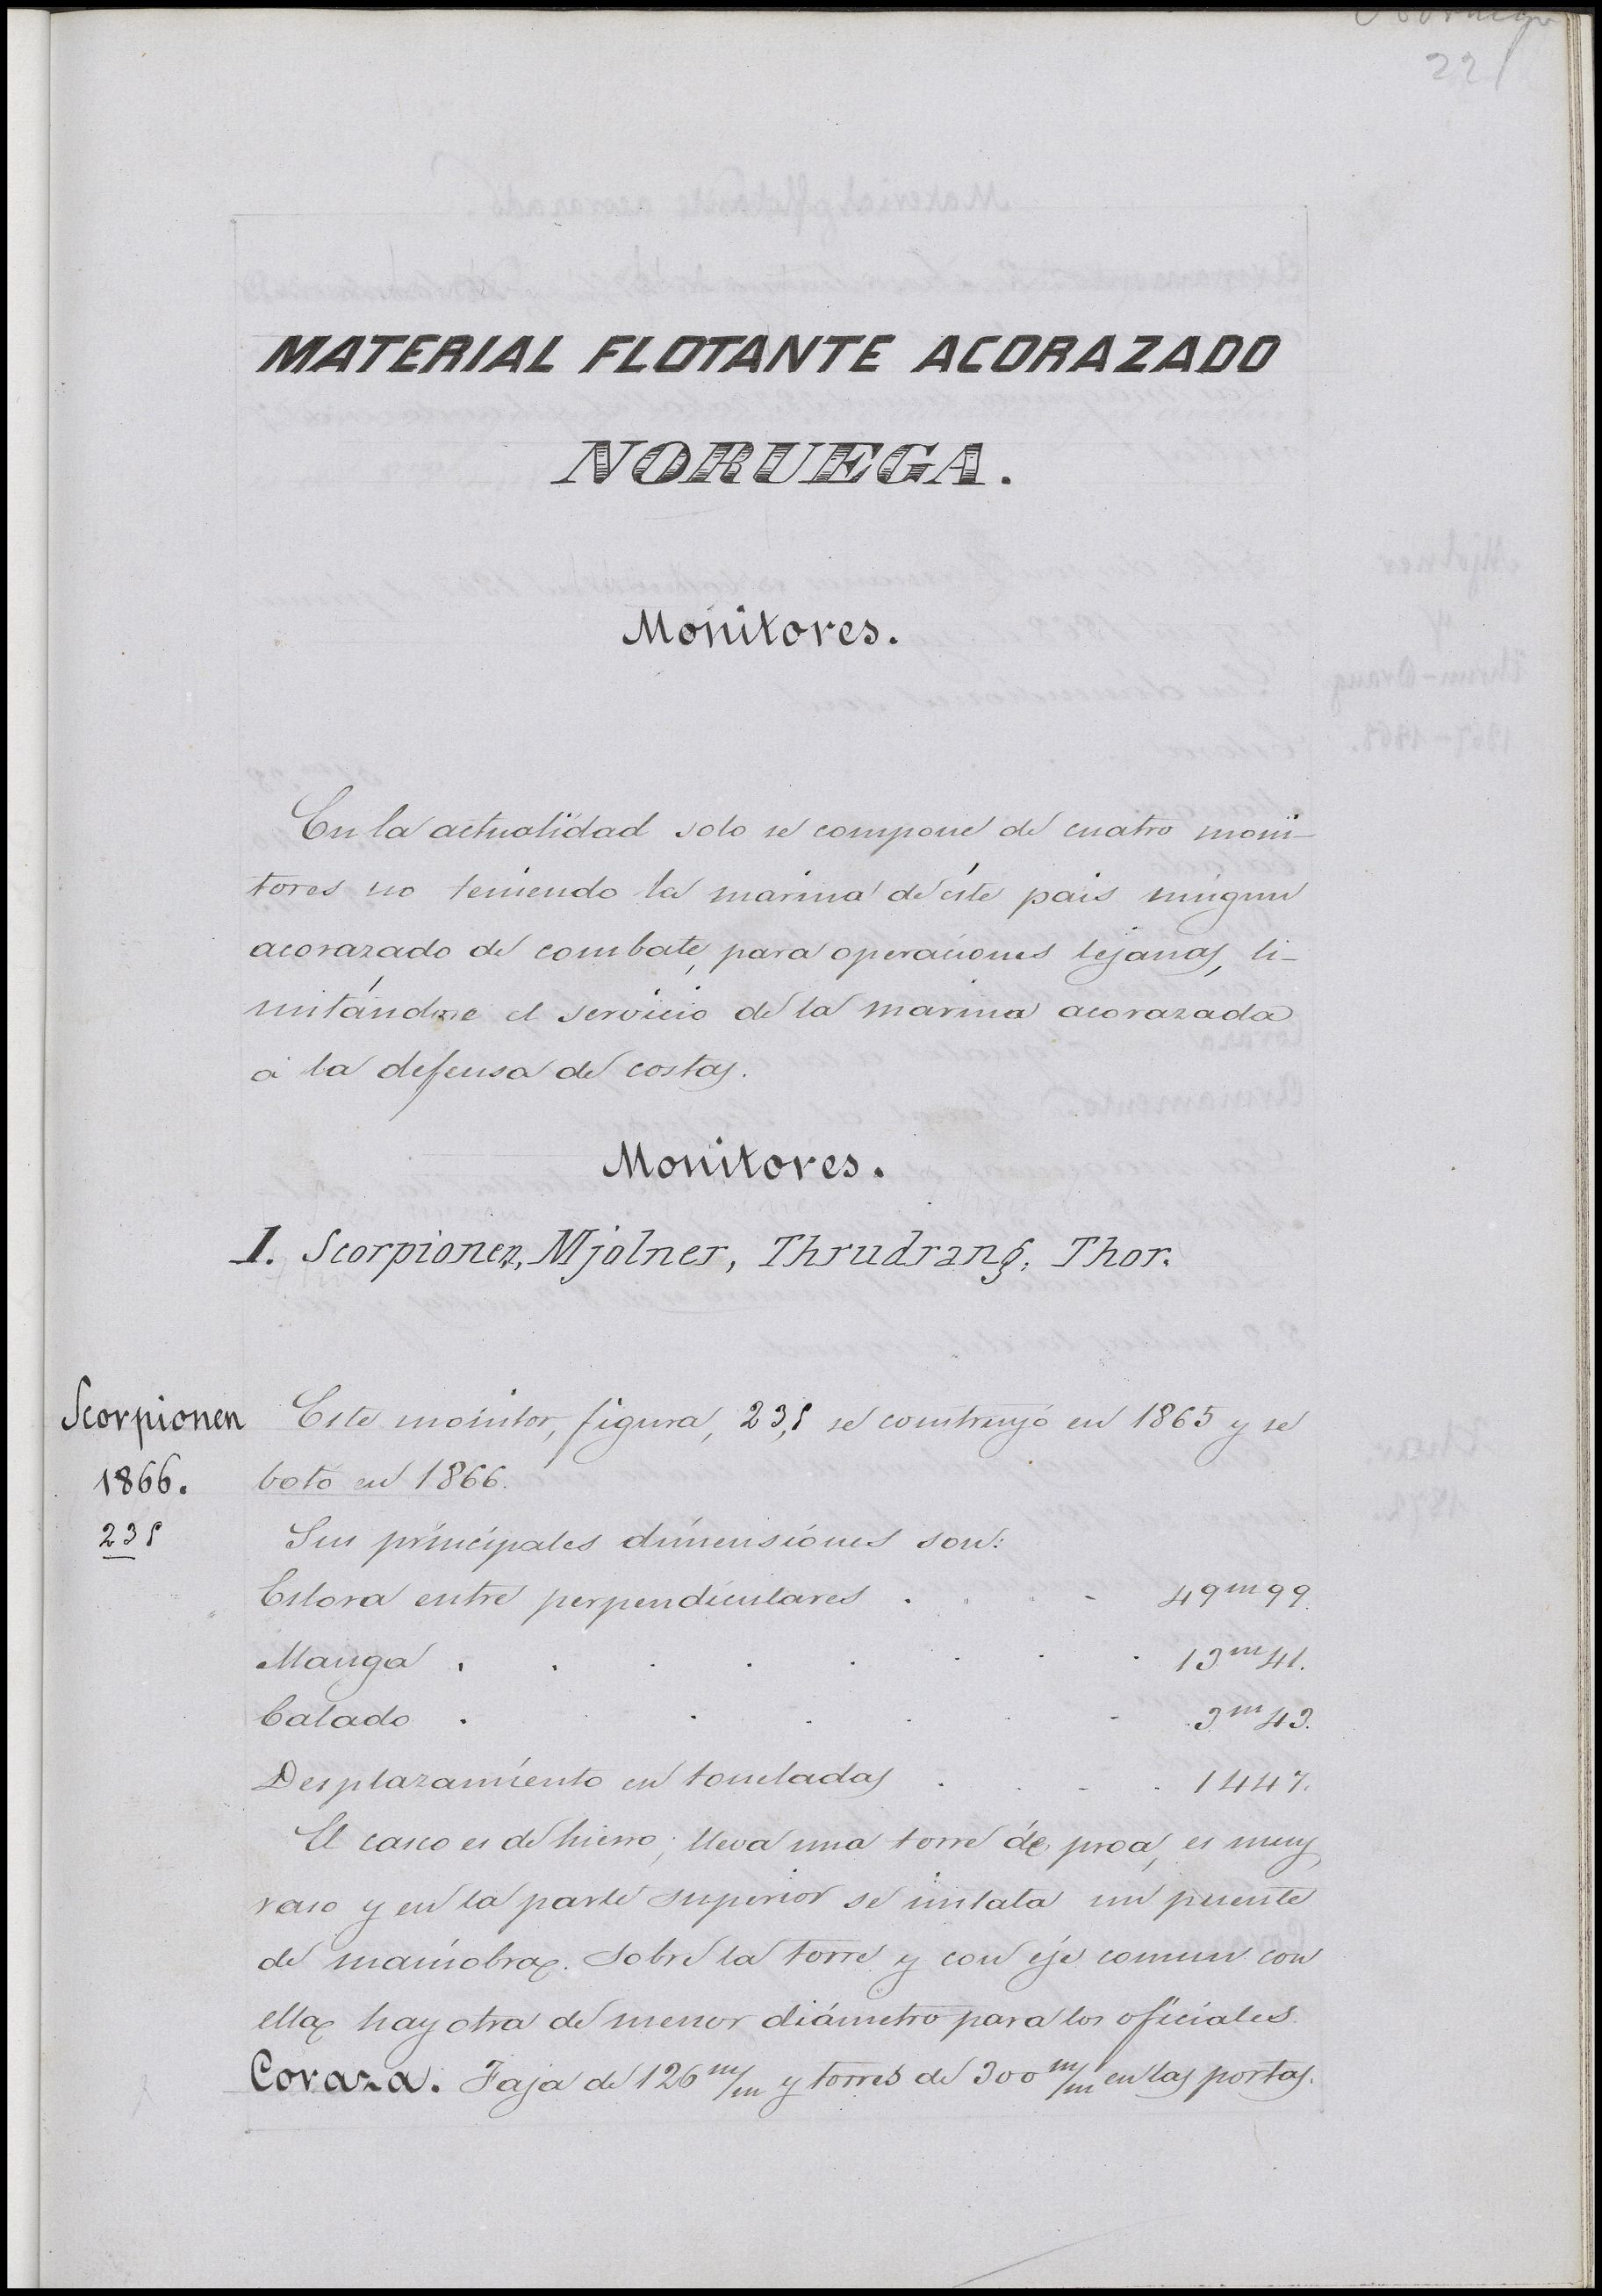 Noruega
221
MATERIAL FLOTANTE ACORAZADO
NORUEGA.
Monitores.
En la actualidad solo se compone de cuatro moni-
tores no teniendo la marina de éste pais ningun
acorazado de combate, para operaciones lejanas, li-
mitándose el servicio de la marina acorazada
á la defensa de costas.
Monitores.
I. Scorpionen, Mjolner, Thrudrang, Thor.
Scorpionen
1866.
231
Este monitor, figura, 231, se construyó en 1865 y se
botó en 1866.
Sus principales dimensiones son:
Eslora entre perpendiculares . . . - 49m99.
Manga . . . . . . . . 13m41.
Calado . . . . . . - 3m43.
Desplazamiento en toneladas . . - . 1447.
El casco es de hierro; lleva una torre de proa, es muy
raso y en la parte superior se instala un puente
de maniobra. Sobre la torre y con eje comun con
ella hay otra de menor diámetro para los oficiales.
Coraza. Faja de 126 m/m y torres de 300 m/m en las portas.